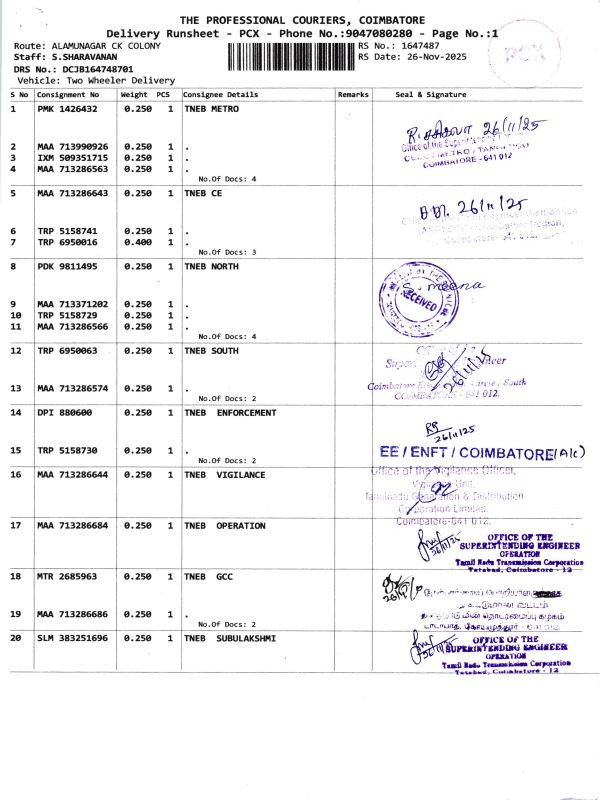 THE PROFESSIONAL COURIERS, COIMBATORE
Delivery Runsheet - PCX - Phone No.:9047080280 - Page No.:1
PCX
Route: ALAMUNAGAR CK COLONY RS No.: 1647487
Staff: S.SHARAVANAN RS Date: 26-Nov-2025
DRS No.: DCJB164748701
Vehicle: Two Wheeler Delivery
S No Consignment No Weight PCS Consignee Details Remarks Seal & Signature
1 PMK 1426432 0.250 1 TNEB METRO
26/11/25
Office of the
CEDC / METRO / TANGEDCO
COIMBATORE - 641 012
2 MAA 713990926 0.250 1 .
3 IXM 509351715 0.250 1 .
4 MAA 713286563 0.250 1 .
No.Of Docs: 4
5 MAA 713286643 0.250 1 TNEB CE
26/11/25
Coimbatore Region,
Coimbatore- 641 012.
6 TRP 5158741 0.250 1 .
7 TRP 6950016 0.400 1 .
No.Of Docs: 3
8 PDK 9811495 0.250 1 TNEB NORTH
RECEIVED
S. meena
9 MAA 713371202 0.250 1 .
10 TRP 5158729 0.250 1 .
11 MAA 713286566 0.250 1 .
No.Of Docs: 4
12 TRP 6950063 0.250 1 TNEB SOUTH
26/11/25
Circle / South
COIMBATORE - 641 012.
13 MAA 713286574 0.250 1 .
No.Of Docs: 2
14 DPI 880600 0.250 1 TNEB ENFORCEMENT
26/11/25
EE / ENFT / COIMBATORE (A/c)
15 TRP 5158730 0.250 1 .
No.Of Docs: 2
16 MAA 713286644 0.250 1 TNEB VIGILANCE
Office of the Vigilance Officer,
Vigilance Unit,
Tamilnadu Generation & Distribution
Corporation Limited.
Coimbatore-641 012.
17 MAA 713286684 0.250 1 TNEB OPERATION
26/11/25
OFFICE OF THE
SUPERINTENDING ENGINEER
OPERATION
Tamil Nadu Transmission Corporation
Tatabad, Coimbatore - 12
18 MTR 2685963 0.250 1 TNEB GCC
19 MAA 713286686 0.250 1 .
No.Of Docs: 2
20 SLM 383251696 0.250 1 TNEB SUBULAKSHMI
26/11/25
OFFICE OF THE
SUPERINTENDING ENGINEER
OPERATION
Tamil Nadu Transmission Corporation
Tatabad, Coimbatore - 12